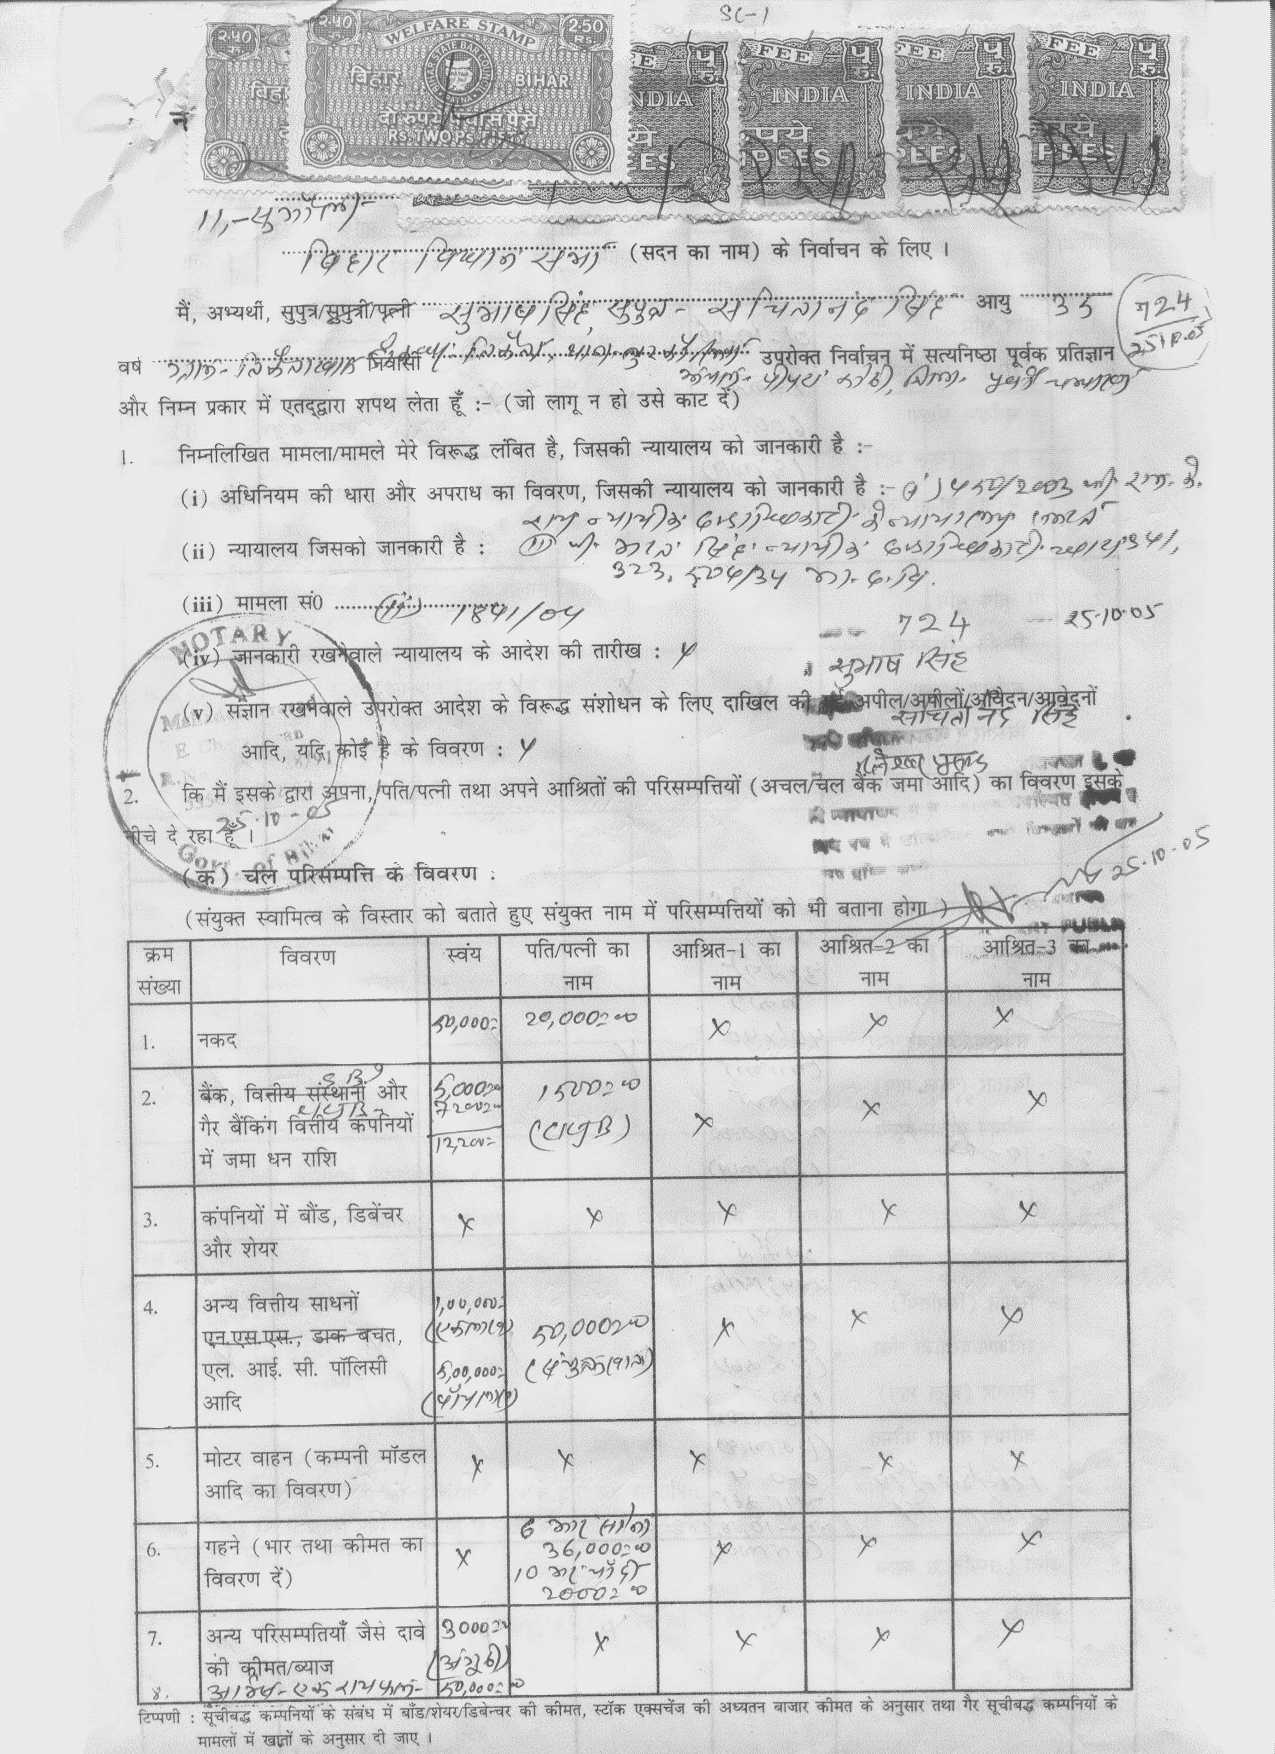 SC-1
२.५० रु. २.५० रु. WELFARE STAMP 2.50 RS.
बिहार BIHAR
दो रुपये पचास पैसे
Rs. TWO Ps. FIFTY
FEE ५ रु. FEE ५ रु. FEE ५ रु.
INDIA INDIA INDIA INDIA
11,-सुगौली-
बिहार विधान सभा (सदन का नाम) के निर्वाचन के लिए ।
मैं, अभ्यर्थी, सुपुत्र/सुपुत्री/पत्नी सुभाष सिंह, सुपुत्र- सचितानंद सिंह आयु 35
724
25.10.05
वर्ष निवासी उपरोक्त निर्वाचन में सत्यनिष्ठा पूर्वक प्रतिज्ञान
और निम्न प्रकार में एतद्द्वारा शपथ लेता हूँ :- (जो लागू न हो उसे काट दें)
1. निम्नलिखित मामला/मामले मेरे विरूद्ध लंबित है, जिसकी न्यायालय को जानकारी है :-
(i) अधिनियम की धारा और अपराध का विवरण, जिसकी न्यायालय को जानकारी है :-
(ii) न्यायालय जिसको जानकारी है : 341,
323, 504/34 भा. द. वि.
(iii) मामला सं0 (iii) 1841/04
724 25.10.05
(iv) जानकारी रखनेवाले न्यायालय के आदेश की तारीख : x
सुभाष सिंह
(v) संज्ञान रखनेवाले उपरोक्त आदेश के विरूद्ध संशोधन के लिए दाखिल की गई अपील/अपीलों/आवेदन/आवेदनों
सचितानंद सिंह
आदि, यदि कोई है के विवरण : x
2. कि मैं इसके द्वारा अपना, पति/पत्नी तथा अपने आश्रितों की परिसम्पत्तियों (अचल/चल बैंक जमा आदि) का विवरण इसके
नीचे दे रहा हूँ ।
NOTARY
25-10-05
Govt. of Bihar
25.10.05
(क) चल परिसम्पत्ति के विवरण :
(संयुक्त स्वामित्व के विस्तार को बताते हुए संयुक्त नाम में परिसम्पत्तियों को भी बताना होगा )
क्रम संख्या विवरण स्वंय पति/पत्नी का नाम आश्रित-1 का नाम आश्रित-2 का नाम आश्रित-3 का नाम
1. नकद 50,000= 20,000=00 x x x
2. बैंक, वित्तीय संस्थानों और 5,000=00 1500=00 x x x
गैर बैंकिंग वित्तीय कंपनियों 7200=00
में जमा धन राशि 12,200=
3. कंपनियों में बौंड, डिबेंचर x x x x x
और शेयर
4. अन्य वित्तीय साधनों 1,00,000=
एन.एस.एस., डाक बचत, 50,000=00 x x x
एल. आई. सी. पॉलिसी 5,00,000=
आदि
5. मोटर वाहन (कम्पनी मॉडल x x x x x
आदि का विवरण)
6. गहने (भार तथा कीमत का x 6 भर सोना x x x
विवरण दें) 36,000=00
10 भर चाँदी
2000=00
7. अन्य परिसम्पतियाँ जैसे दावे 3000=00 x x x x
की कीमत/ब्याज (अंगूठी)
8. आर्म्स-एक रायफल- 50,000=00
टिप्पणी : सूचीबद्ध कम्पनियों के संबंध में बॉंड/शेयर/डिबेन्चर की कीमत, स्टॉक एक्सचेंज की अध्यतन बाजार कीमत के अनुसार तथा गैर सूचीबद्ध कम्पनियों के
मामलों में खातों के अनुसार दी जाए ।